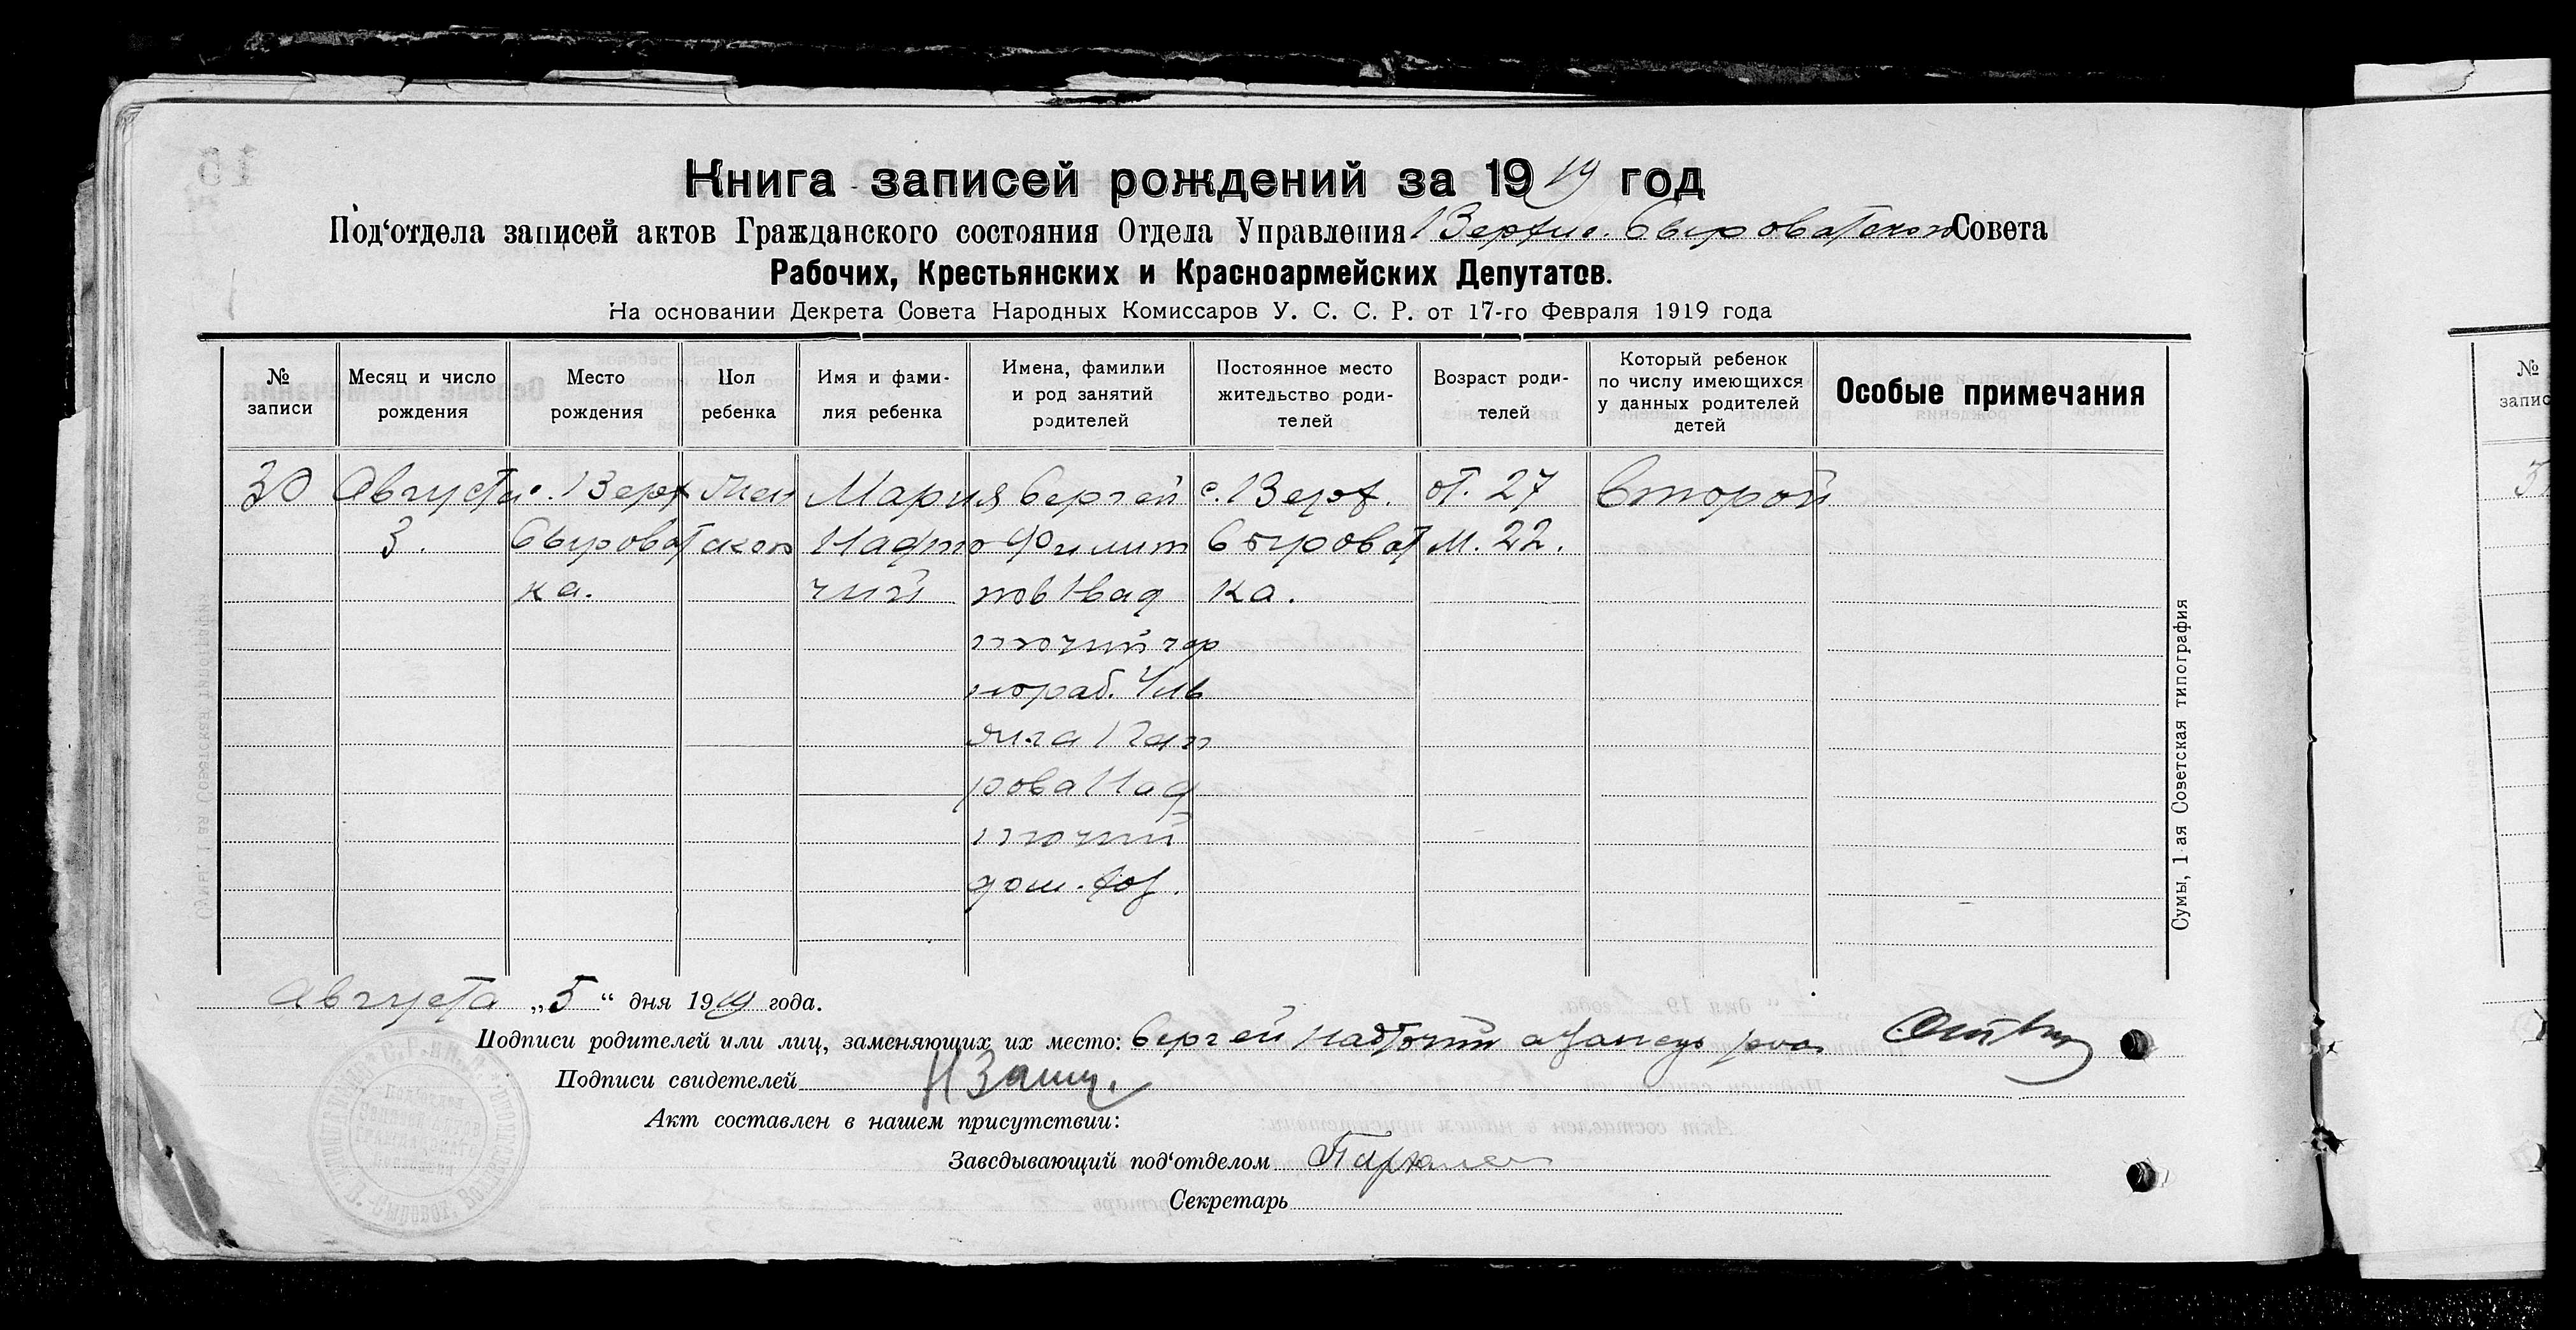 Книга записей рождений за 1919 год
Под‘отдела записей актов Гражданского состояния Отдела Управления Верхне-Сыроватского Совета
Рабочих, Крестьянских и Красноармейских Депутатов.
На основании Декрета Совета Народных Комиссаров У. С. С. Р. от 17-го Февраля 1919 года
№ записи
Месяц и число рождения
Место рождения
Пол ребенка
Имя и фами-
лия ребенка
Имена, фамилии
и род занятий
родителей
Постоянное место
жительство роди-
телей
Возраст роди-
телей
Который ребенок
по числу имеющихся
у данных родителей
детей
Особые примечания
30
Августа
3.
с. Верх
Сыроват
ка.
жен
ской
Мария
Надто
чий
Сергей
Филип
пов Над
точий чер
нораб. Уль
яна Пет
рова Над
точий
дом. хоз.
с. Верх.
Сыроват
ка.
от. 27
м. 22.
Второй
Августа „5“ дня 1919 года.
Подписи родителей или лиц, заменяющих их место: Сергей Надточий
Подписи свидетелей
Акт составлен в нашем присутствии:
Заведывающий под‘отделом
Секретарь
Сумы, 1-ая Советская типография
№
запис